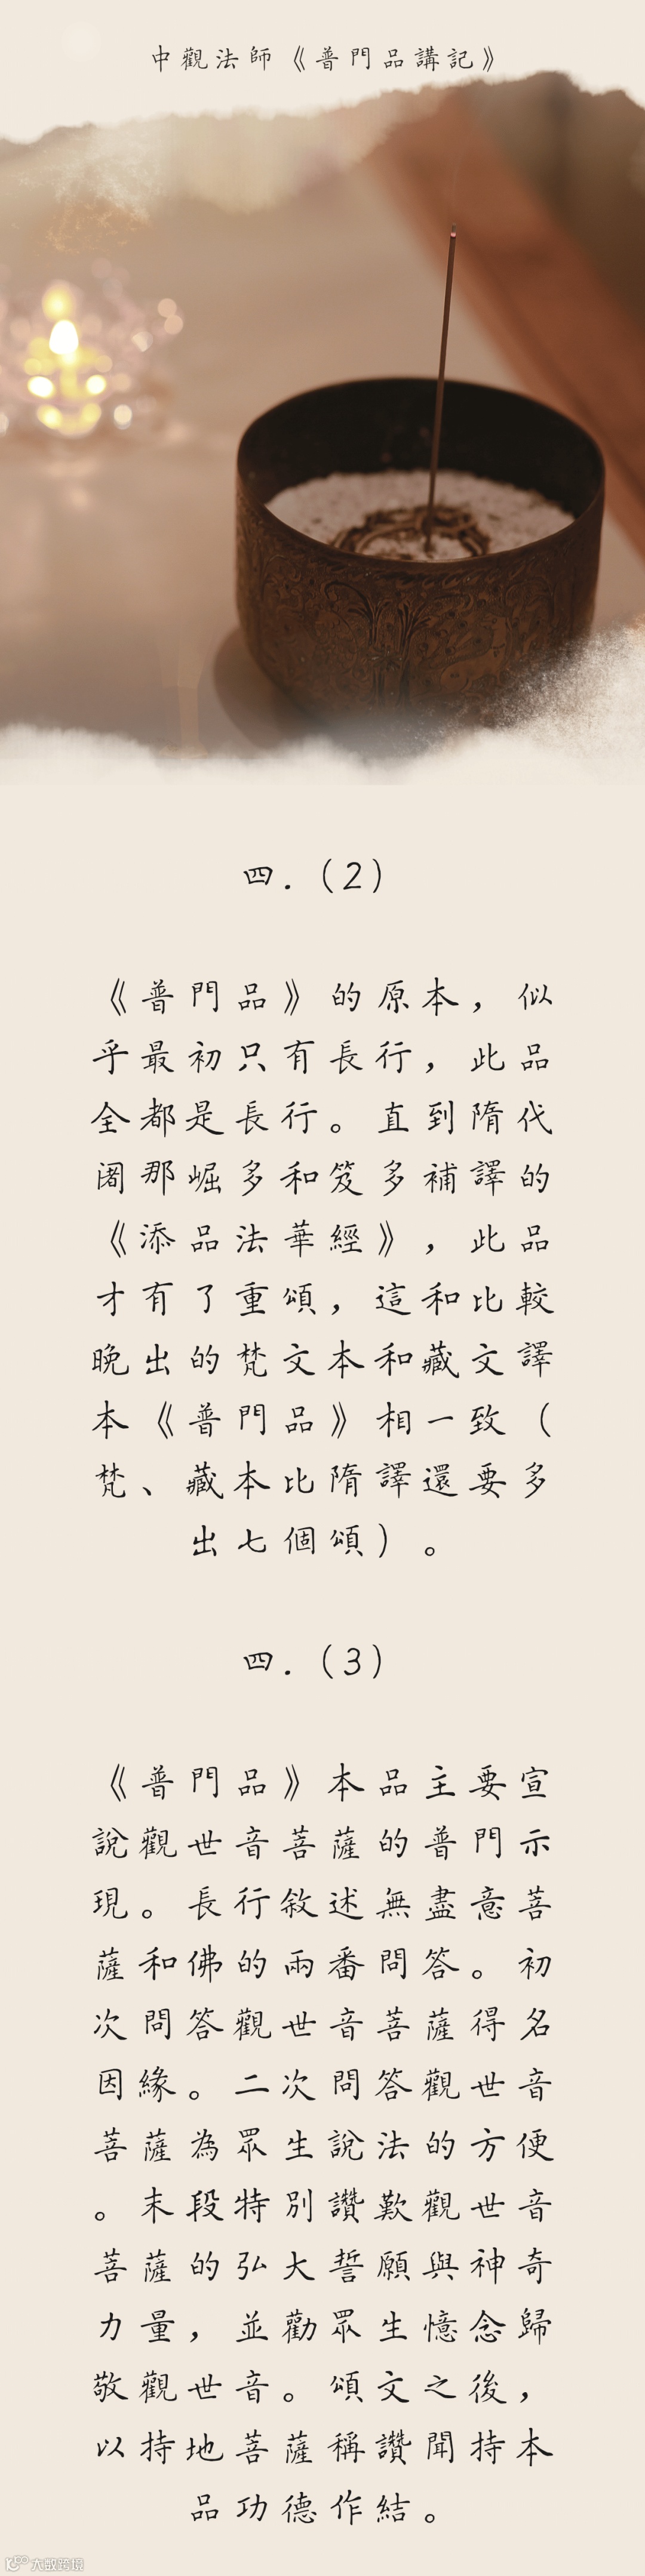 中觀法師《普門品講記》
四.（2）
《普門品》的原本，似
乎最初只有長行，此品
全都是長行。直到隋代
闍那崛多和笈多補譯的
《添品法華經》，此品
才有了重頌，這和比較
晚出的梵文本和藏文譯
本《普門品》相一致（
梵、藏本比隋譯還要多
出七個頌）。
四.（3）
《普門品》本品主要宣
說觀世音菩薩的普門示
現。長行敘述無盡意菩
薩和佛的兩番問答。初
次問答觀世音菩薩得名
因緣。二次問答觀世音
菩薩為眾生說法的方便
。末段特別讚歎觀世音
菩薩的弘大誓願與神奇
力量，並勸眾生憶念歸
敬觀世音。頌文之後，
以持地菩薩稱讚聞持本
品功德作結。
大数跨境